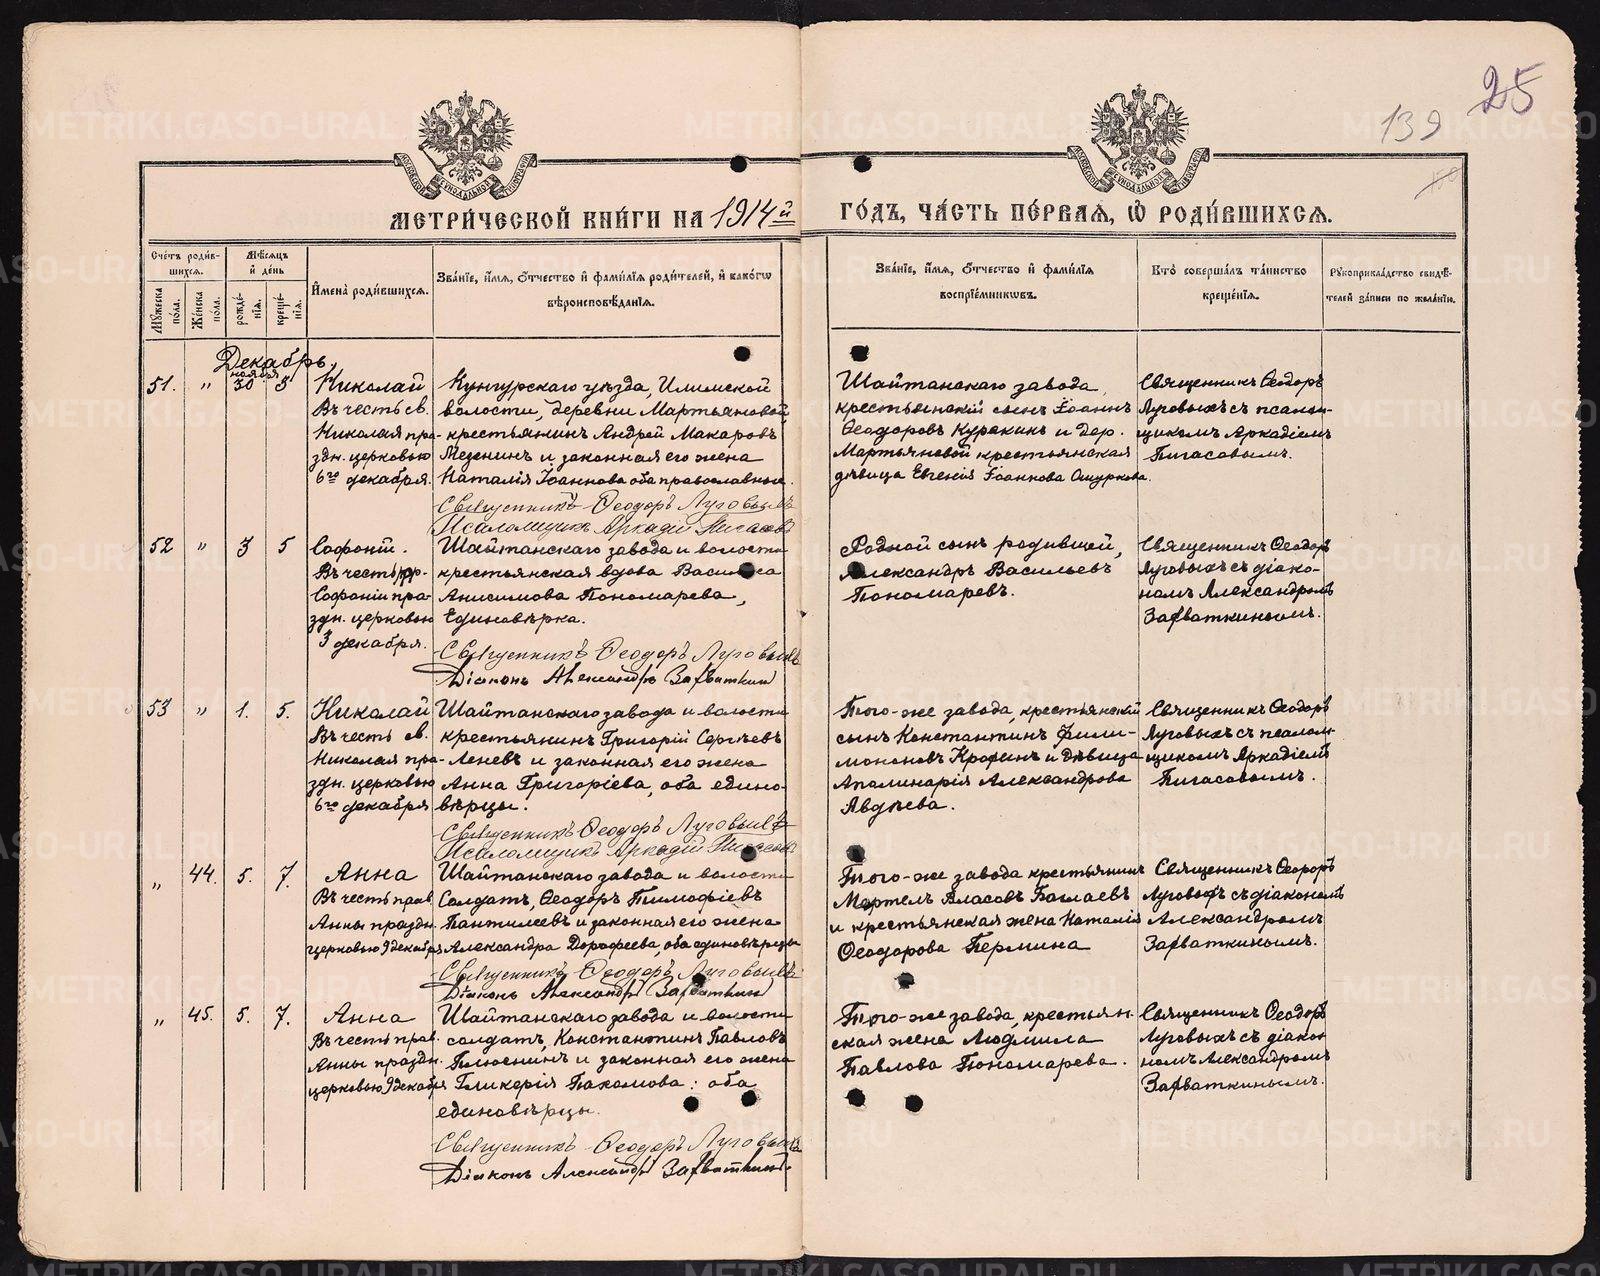 25
139
МЕТРИ́ЧЕСКОЙ КНИ́ГИ НА 1914й ГО́ДЪ, ЧА́СТЬ ПЕ́РВАЯ, Ѡ҆ РОДИ́ВШИХСЯ.
Сче́тъ роди́вшихся.
Мꙋ́жеска по́ла.
Же́нска по́ла.
Мѣ́сяцъ и҆ де́нь
рожде́нїя.
креще́нїя.
И҆мена̀ роди́вшихся.
Зва́нїе, и҆́мя, ѻ҆́тчество и҆ фами́лїя роди́телей, и҆ како́гѡ
вѣроисповѣ́данїя.
Зва́нїе, и҆́мя, ѻ҆́тчество и҆ фами́лїя
воспрїе́мникѡвъ.
Кто̀ соверша́лъ та́инство
креще́нїя.
Рꙋкоприкла́дство свидѣ́-
телей за́писи по жела́нїю.
Декабрь.
51. " ноября 30 5
Николай
Въ честь св.
Николая пра-
здн. церковью
6го декабря.
Кунгурскаго уѣзда, Илимской
волости, деревни Мартьяновой,
крестьянинъ Андрей Макаровъ
Мезенинъ и законная его жена
Наталія Іоаннова оба православные.
Священникъ Ѳеодоръ Луговыхъ
Псаломщикъ Аркадій Пигасовъ
Шайтанскаго завода
крестьянскій сынъ Іоаннъ
Ѳеодоровъ Куракинъ и дер.
Мартьяновой крестьянская
дѣвица Евгенія Іоаннова Ошуркова.
Священникъ Ѳеодоръ
Луговыхъ съ псалом-
щикомъ Аркадіемъ
Пигасовымъ.
52 " 3 5
Софоній.
Въ честь пр.
Софоніи пра-
здн. церковью
3 декабря.
Шайтанскаго завода и волости
крестьянская вдова Василиса
Анисимова Пономарева,
Единовѣрка.
Священникъ Ѳеодоръ Луговыхъ
Діаконъ Александръ Захваткин
Родной сынъ родившей,
Александръ Васильевъ
Пономаревъ.
Священникъ Ѳеодоръ
Луговыхъ съ діако-
номъ Александромъ
Захваткинымъ.
53 " 1. 5.
Николай
Въ честь св.
Николая пра-
здн. церковью
6го декабря
Шайтанскаго завода и волости
крестьянинъ Григорій Сергѣевъ
Леневъ и законная его жена
Анна Григоріева, оба едино-
вѣрцы.
Священникъ Ѳеодоръ Луговыхъ
Псаломщикъ Аркадій Пигасовъ
Того-же завода, крестьянскій
сынъ Константинъ Фили-
моновъ и дѣвица
Аполинарія Александрова
Авдѣева.
Священникъ Ѳеодоръ
Луговыхъ съ псалом-
щикомъ Аркадіемъ
Пигасовымъ.
" 44. 5. 7.
Анна
Въ честь прав.
Анны праздн.
церковью 9 декабря
Шайтанскаго завода и волости
Солдатъ, Ѳеодоръ Тимофіевъ
Пантилеевъ и законная его жена
Александра Дорофеева, оба единовѣрцы
Священникъ Ѳеодоръ Луговыхъ
Діаконъ Александръ Захваткин
Того-же завода крестьянинъ
Мартелъ Власовъ
и крестьянская жена Наталія
Ѳеодорова Пермина
Священникъ Ѳеодоръ
Луговыхъ съ діакономъ
Александромъ
Захваткинымъ.
" 45. 5. 7.
Анна
Въ честь прав.
Анны праздн.
церковью 9 декабря
Шайтанскаго завода и волости
солдатъ, Константинъ Павловъ
Плюснинъ и законная его жена
Гликерія Пахомова: оба
единовѣрцы.
Священникъ Ѳеодоръ Луговыхъ
Діаконъ Александръ Захваткин
Того-же завода, крестьян-
ская жена Людмила
Павлова Пономарева.
Священникъ Ѳеодоръ
Луговыхъ съ діако-
номъ Александромъ
Захваткинымъ.